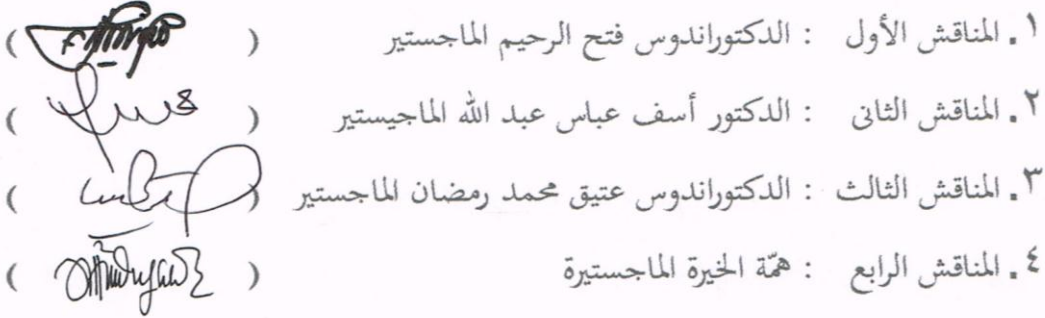 ١. المناقش الأول : الدكتوراندوس فتح الرحيم الماجستير ( )
٢. المناقش الثانى : الدكتور أسف عباس عبد الله الماجيستير ( )
٣. المناقش الثالث : الدكتوراندوس عتيق محمد رمضان الماجستير ( )
٤. المناقش الرابع : همّة الخيرة الماجستيرة ( )